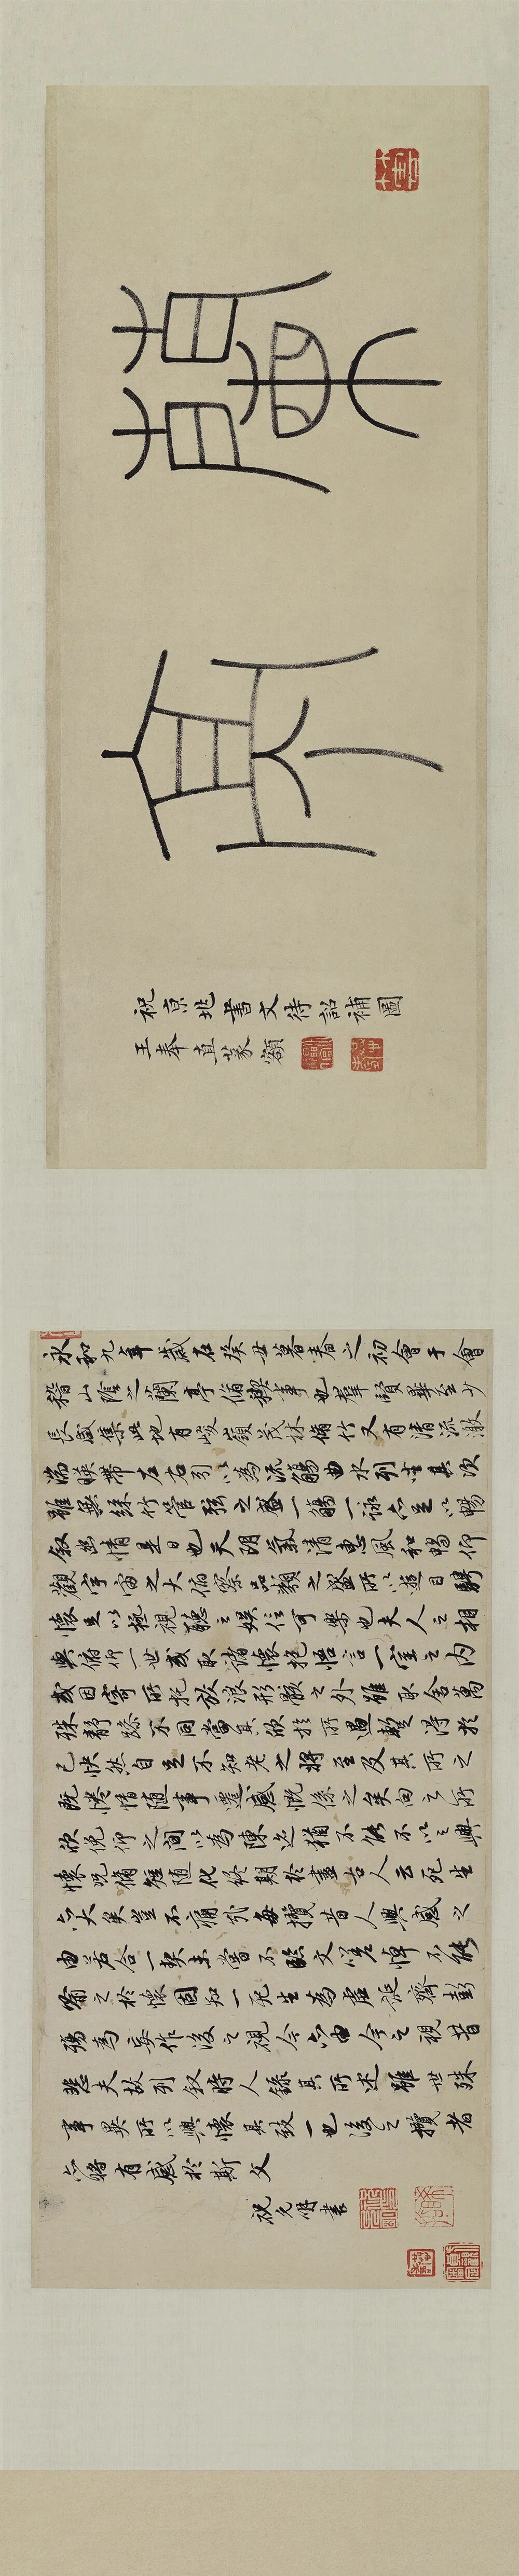 蘭亭
祝京兆書文待詔補圖
王奉直篆額
永和九年歲在癸丑暮春之初會于會
稽山陰之蘭亭脩禊事也羣賢畢至少
長咸集此地有峻嶺茂林脩竹又有清流激
湍暎帶左右引以為流觴曲水列坐其次
雖無絲竹管弦之盛一觴一詠亦足以暢
敘幽情是日也天朗氣清惠風和暢仰
觀宇宙之大俯察品類之盛所以遊目騁
懷足以極視聽之娛信可樂也夫人之相
與俯仰一世或取諸懷抱悟言一室之內
或因寄所托放浪形骸之外雖取舍萬
殊靜躁不同當其欣於所遇暫得於
己快然自足不知老之將至及其所之
既惓情隨事遷感慨係之矣向之所
欣俛仰之間以為陳迹猶不能不以之興
懷況脩短隨化終期於盡古人云死生
亦大矣豈不痛哉每攬昔人興感之
由若合一契未嘗不臨文嗟悼不能
喻之於懷固知一死生為虛誕齊彭
殤為妄作後之視今亦由今之視昔
悲夫故列敘時人錄其所述雖世殊
事異所以興懷其致一也後之攬者
亦將有感於斯文
祝允明書